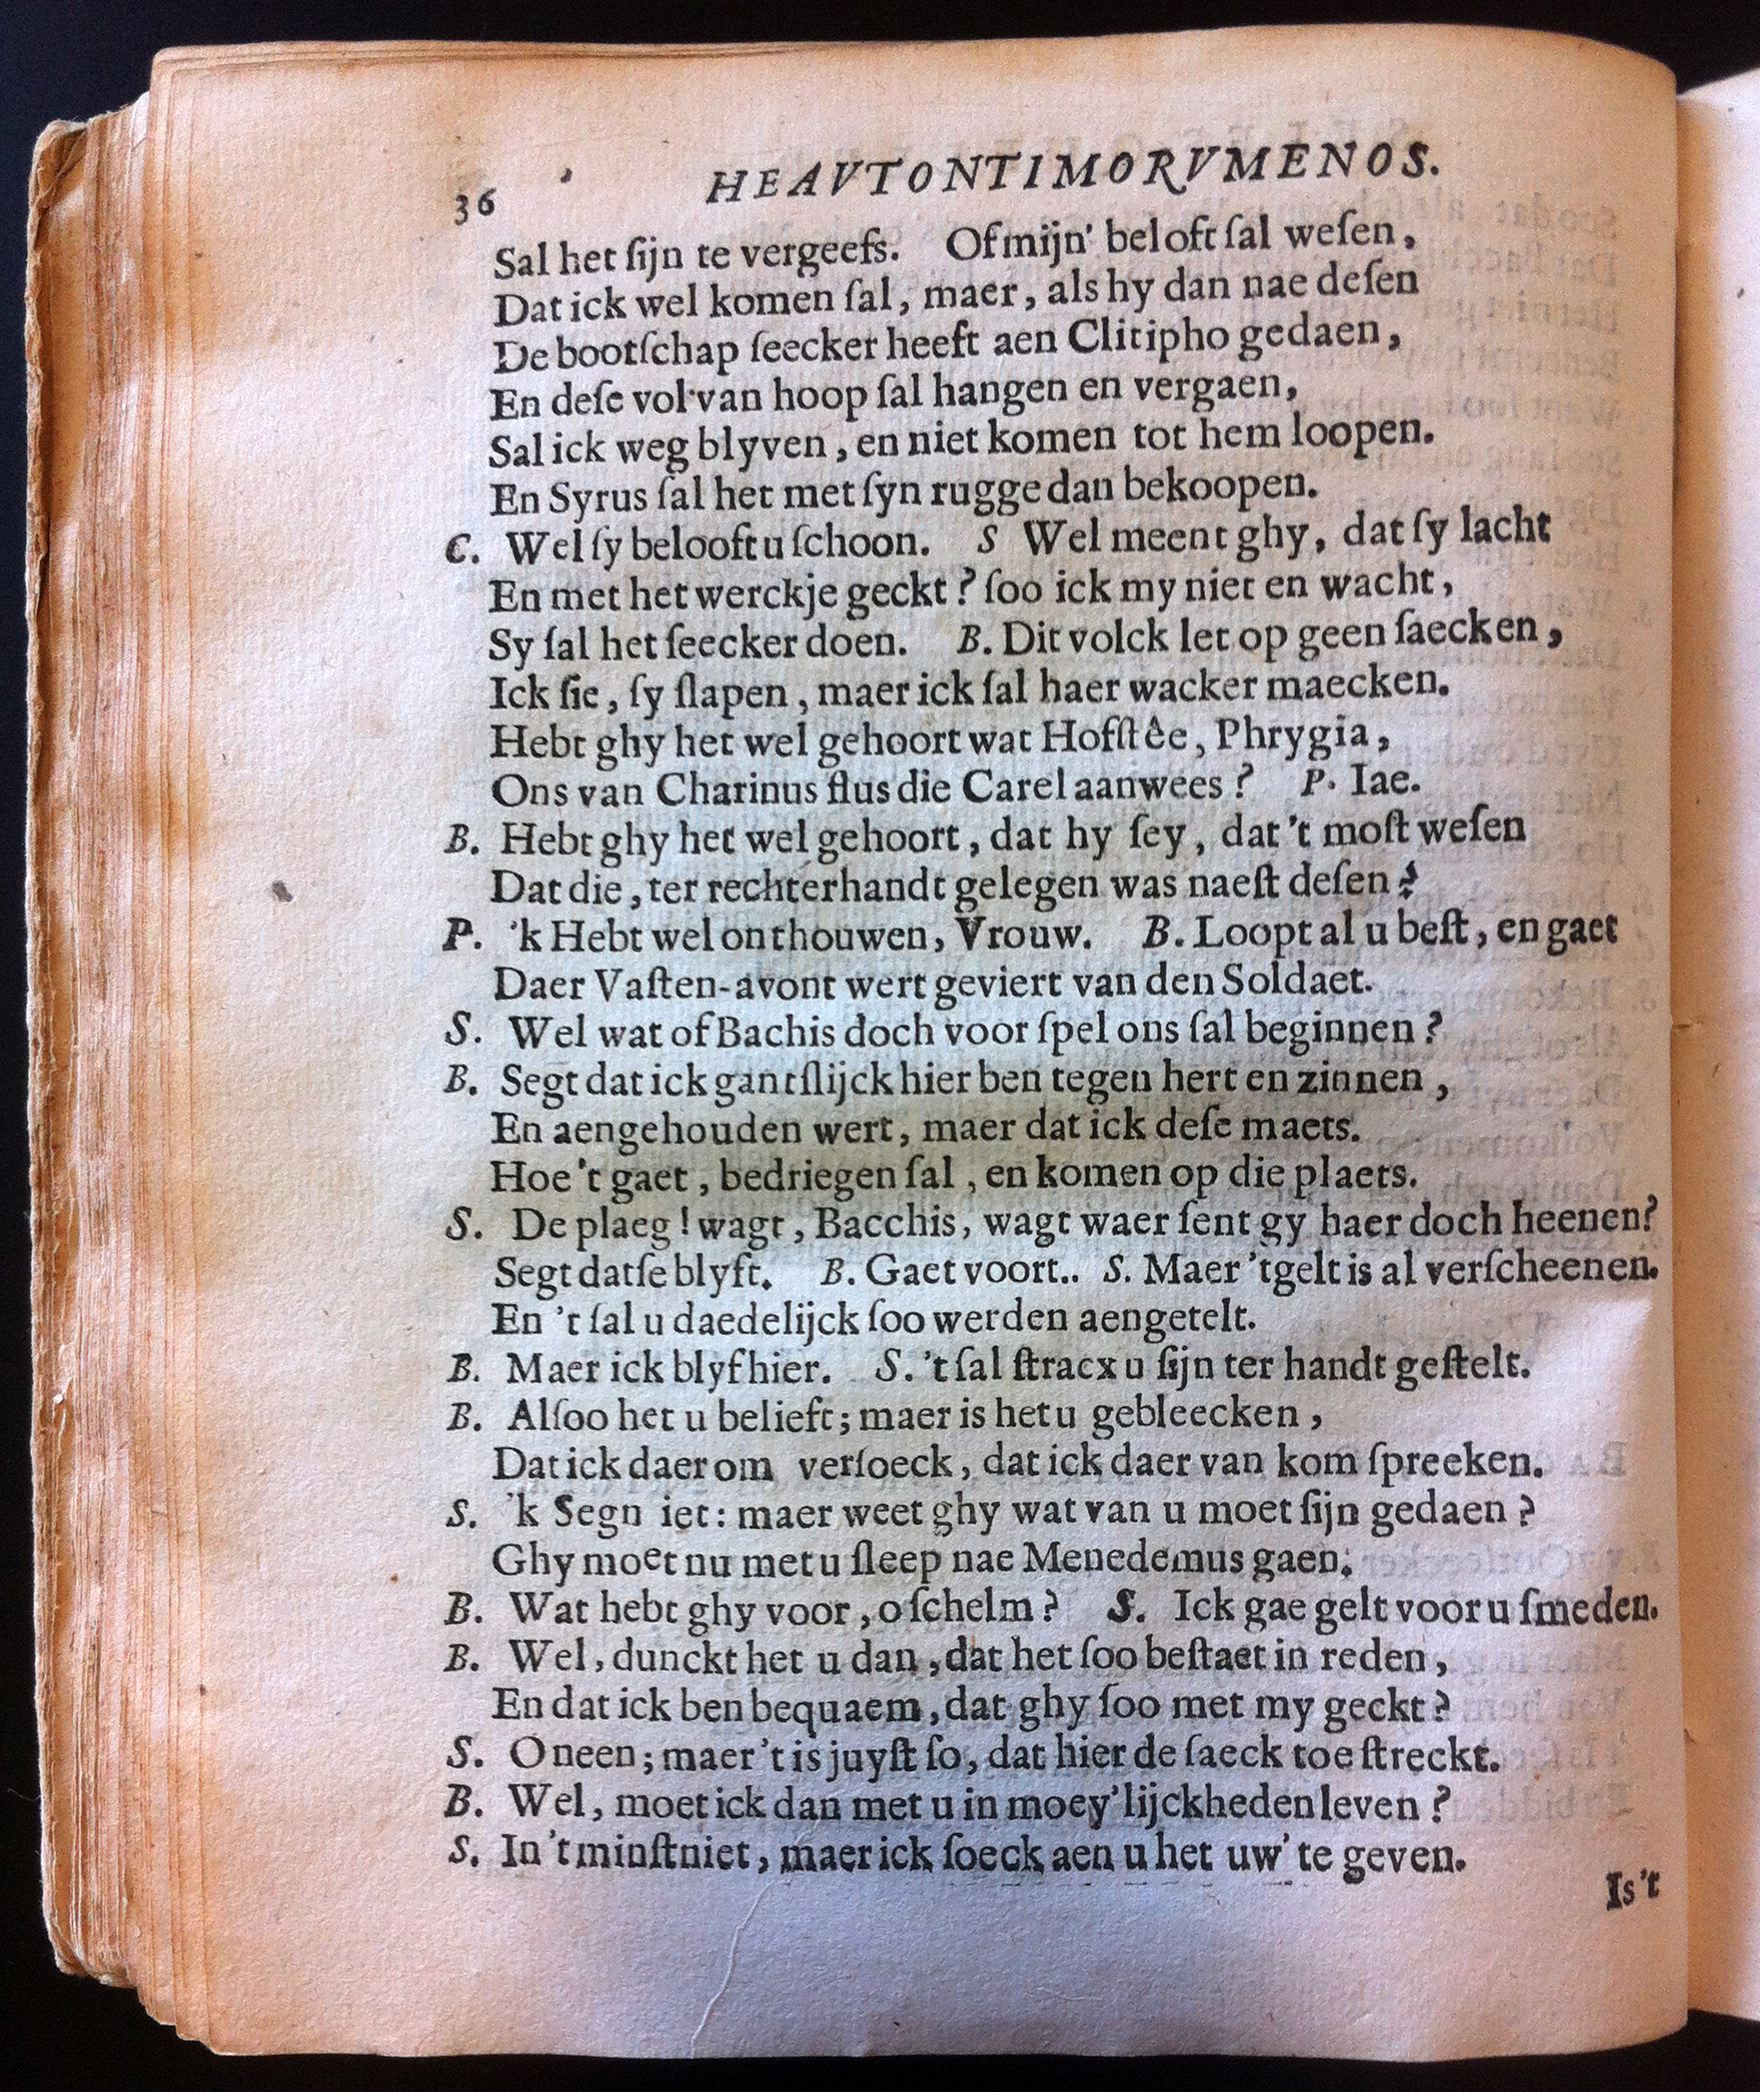 36 HEAVTONTIMORVMENOS.
Sal het ſijn te vergeefs. Of mijn' beloft ſal weſen,
Dat ick wel komen ſal, maer, als hy dan nae deſen
De bootſchap ſeecker heeft aen Clitipho gedaen,
En deſe vol van hoop ſal hangen en vergaen,
Sal ick weg blyven, en niet komen tot hem loopen.
En Syrus ſal het met ſyn rugge dan bekoopen.
C. Wel ſy belooft u ſchoon. S Wel meent ghy, dat ſy lacht
En met het werckje geckt? ſoo ick my niet en wacht,
Sy ſal het ſeecker doen. B. Dit volck let op geen ſaecken,
Ick ſie, ſy ſlapen, maer ick ſal haer wacker maecken.
Hebt ghy het wel gehoort wat Hofſtêe, Phrygia,
Ons van Charinus flus die Carel aanwees? P. Iae.
B. Hebt ghy het wel gehoort, dat hy ſey, dat 't moſt weſen
Dat die, ter rechterhandt gelegen was naeſt deſen?
P. 'k Hebt wel onthouwen, Vrouw. B. Loopt al u beſt, en gaet
Daer Vaſten-avont wert geviert van den Soldaet.
S. Wel wat of Bachis doch voor ſpel ons ſal beginnen?
B. Segt dat ick gantſlijck hier ben tegen hert en zinnen,
En aengehouden wert, maer dat ick deſe maets.
Hoe 't gaet, bedriegen ſal, en komen op die plaets.
S. De plaeg! wagt, Bacchis, wagt waer ſent gy haer doch heenen?
Segt datſe blyft. B. Gaet voort.. S. Maer 'tgelt is al verſcheenen.
En 't ſal u daedelijck ſoo werden aengetelt.
B. Maer ick blyf hier. S. 't ſal ſtracx u ſijn ter handt geſtelt.
B. Alſoo het u belieft; maer is het u gebleecken,
Dat ick daerom verſoeck, dat ick daer van kom ſpreeken.
S. 'k Segn iet: maer weet ghy wat van u moet ſijn gedaen?
Ghy moet nu met u ſleep nae Menedemus gaen.
B. Wat hebt ghy voor, o ſchelm? S. Ick gae gelt voor u ſmeden.
B. Wel, dunckt het u dan, dat het ſoo beſtaet in reden,
En dat ick ben bequaem, dat ghy ſoo met my geckt?
S. O neen; maer 't is juyſt ſo, dat hier de ſaeck toe ſtreckt.
B. Wel, moet ick dan met u in moey'lijckheden leven?
S. In 't minſt niet, maer ick ſoeck aen u het uw' te geven.
Is 't